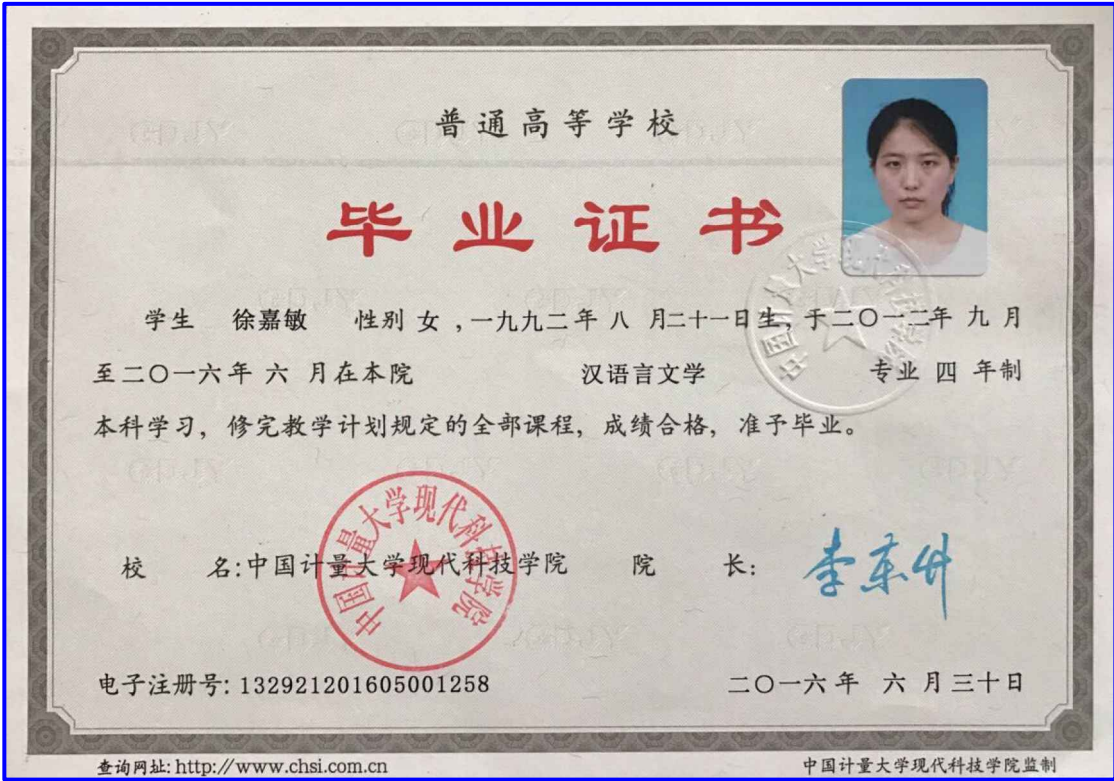 普通高等学校
毕业证书
学生 徐嘉敏 性别 女 ,一九九二年 八 月二十一日生, 于二〇一二年 九 月
至二〇一六年 六 月在本院 汉语言文学 专业 四 年制
本科学习, 修完教学计划规定的全部课程, 成绩合格, 准予毕业。
中国计量大学现代科技学院
中国计量大学现代科技学院
校 名:中国计量大学现代科技学院 院 长: 李东升
电子注册号: 132921201605001258 二〇一六年 六 月三十日
查询网址: http://www.chsi.com.cn 中国计量大学现代科技学院监制